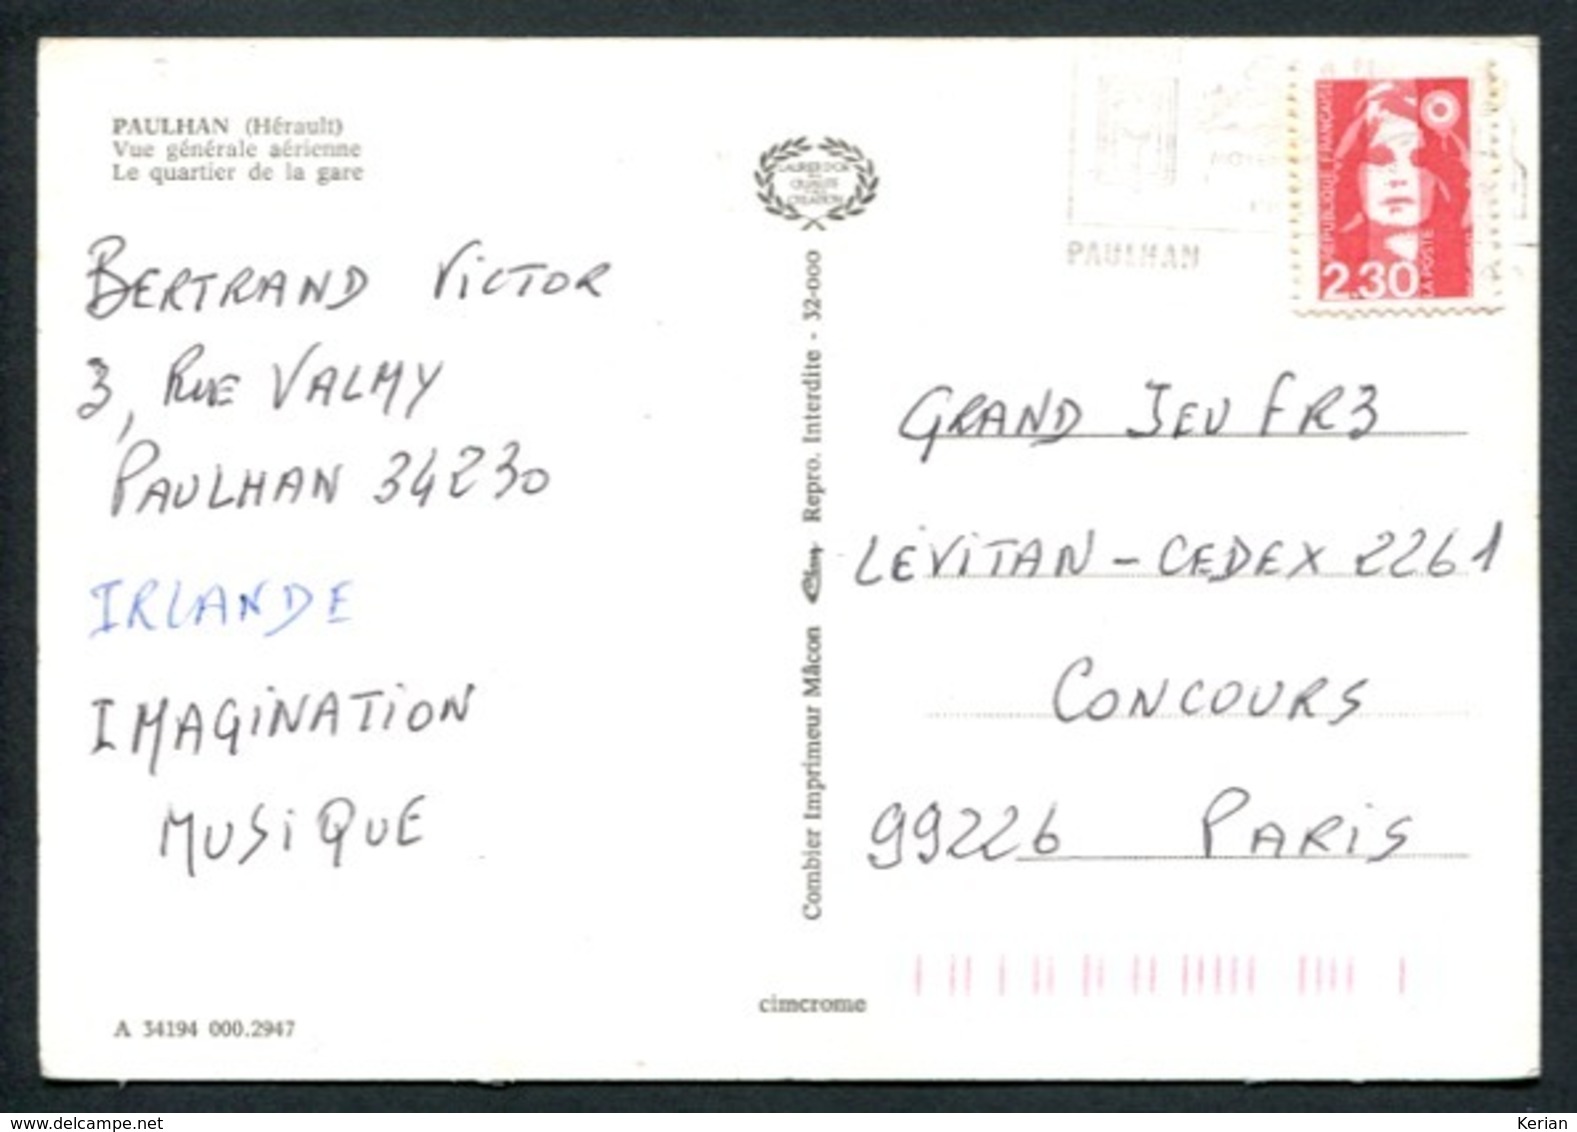 PAULHAN (Hérault)
Vue générale aérienne
Le quartier de la gare
LAURIER D'OR
QUALITÉ
CRÉATION
PAULHAN
RÉPUBLIQUE FRANÇAISE
2.30
LA POSTE
BERTRAND VICTOR
3, RUE VALMY
PAULHAN 34230
IRLANDE
IMAGINATION
MUSIQUE
Combier Imprimeur Mâcon Cim Repro. Interdite - 32-000
GRAND JEU FR3
LÉVITAN - CEDEX 2261
CONCOURS
99226 PARIS
cimcrome
A 34194 000.2947
delcampe.net
Kerian